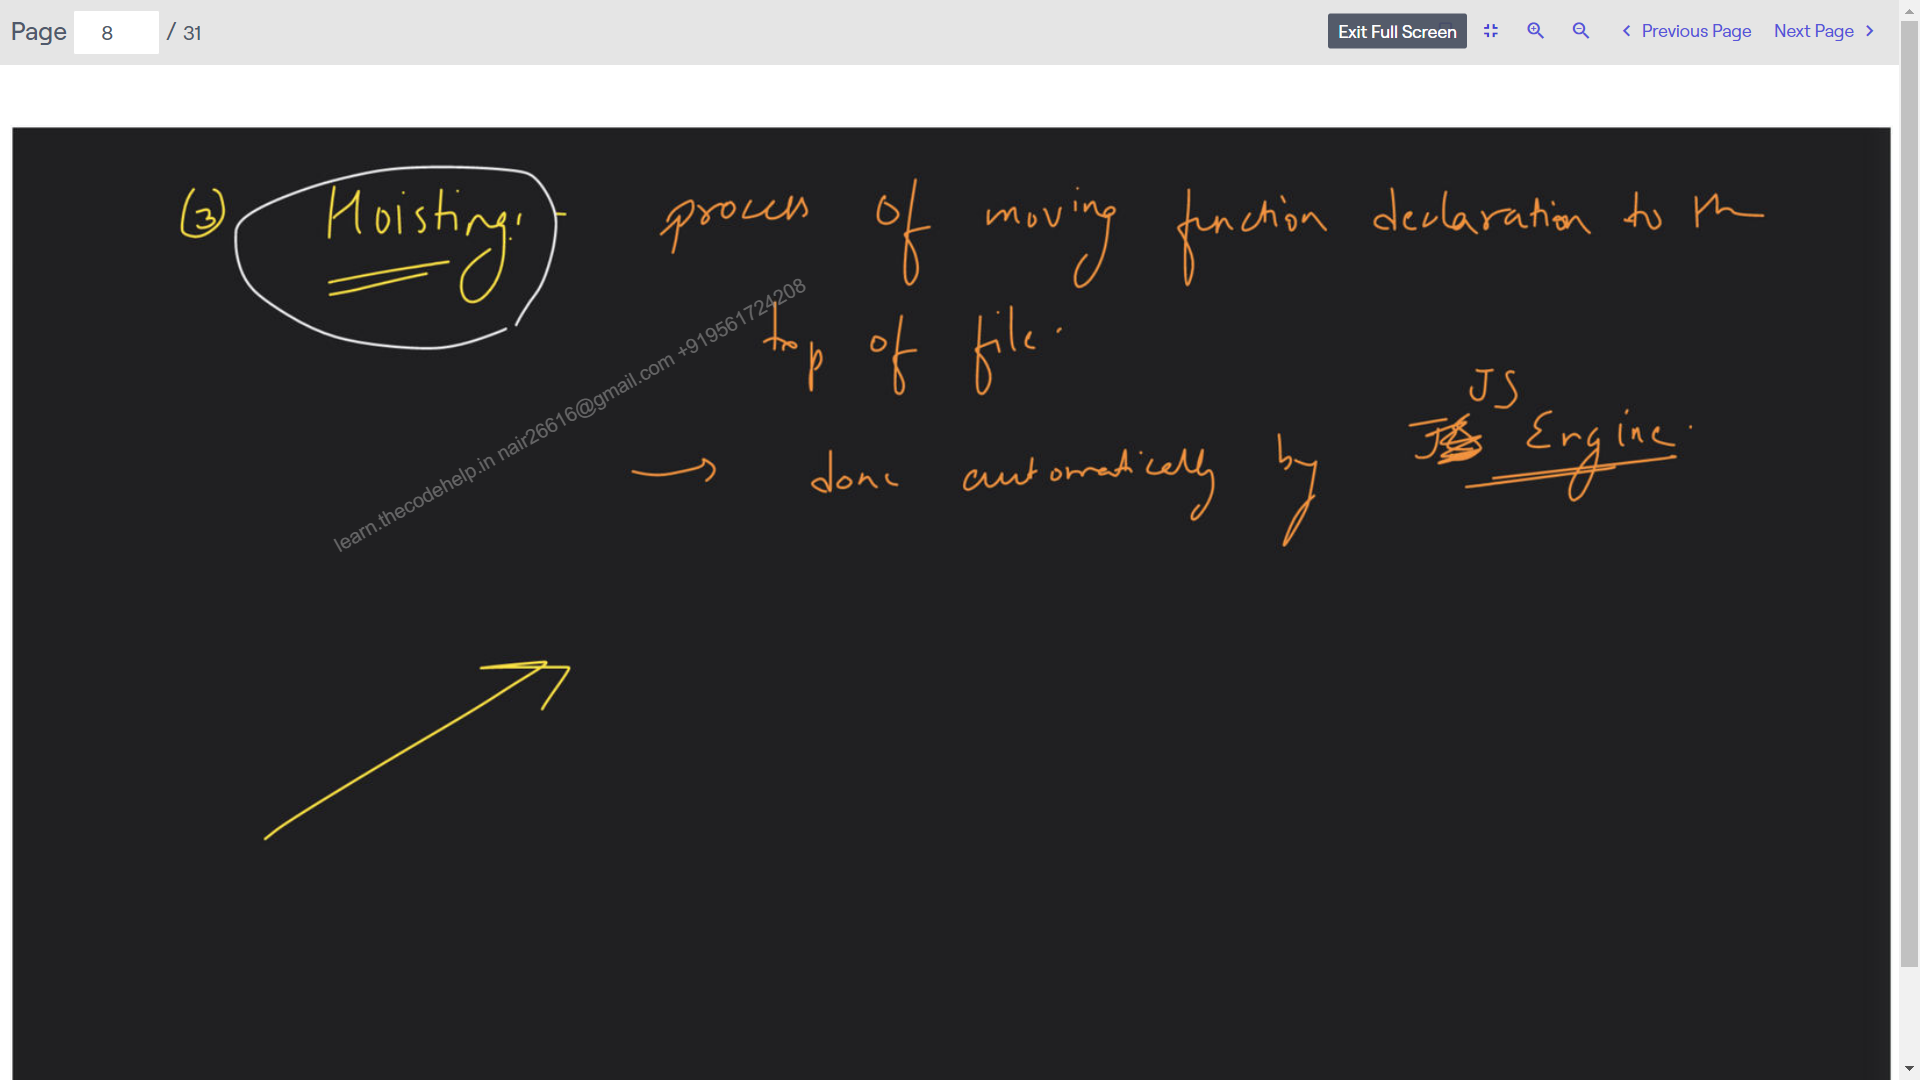 Page 8 / 31 Exit Full Screen Previous Page Next Page
(3) Hoisting:- process of moving function declaration to th
top of file.
→ done automatically by JS Engine.
learn.thecodehelp.in nair26616@gmail.com +919561724208